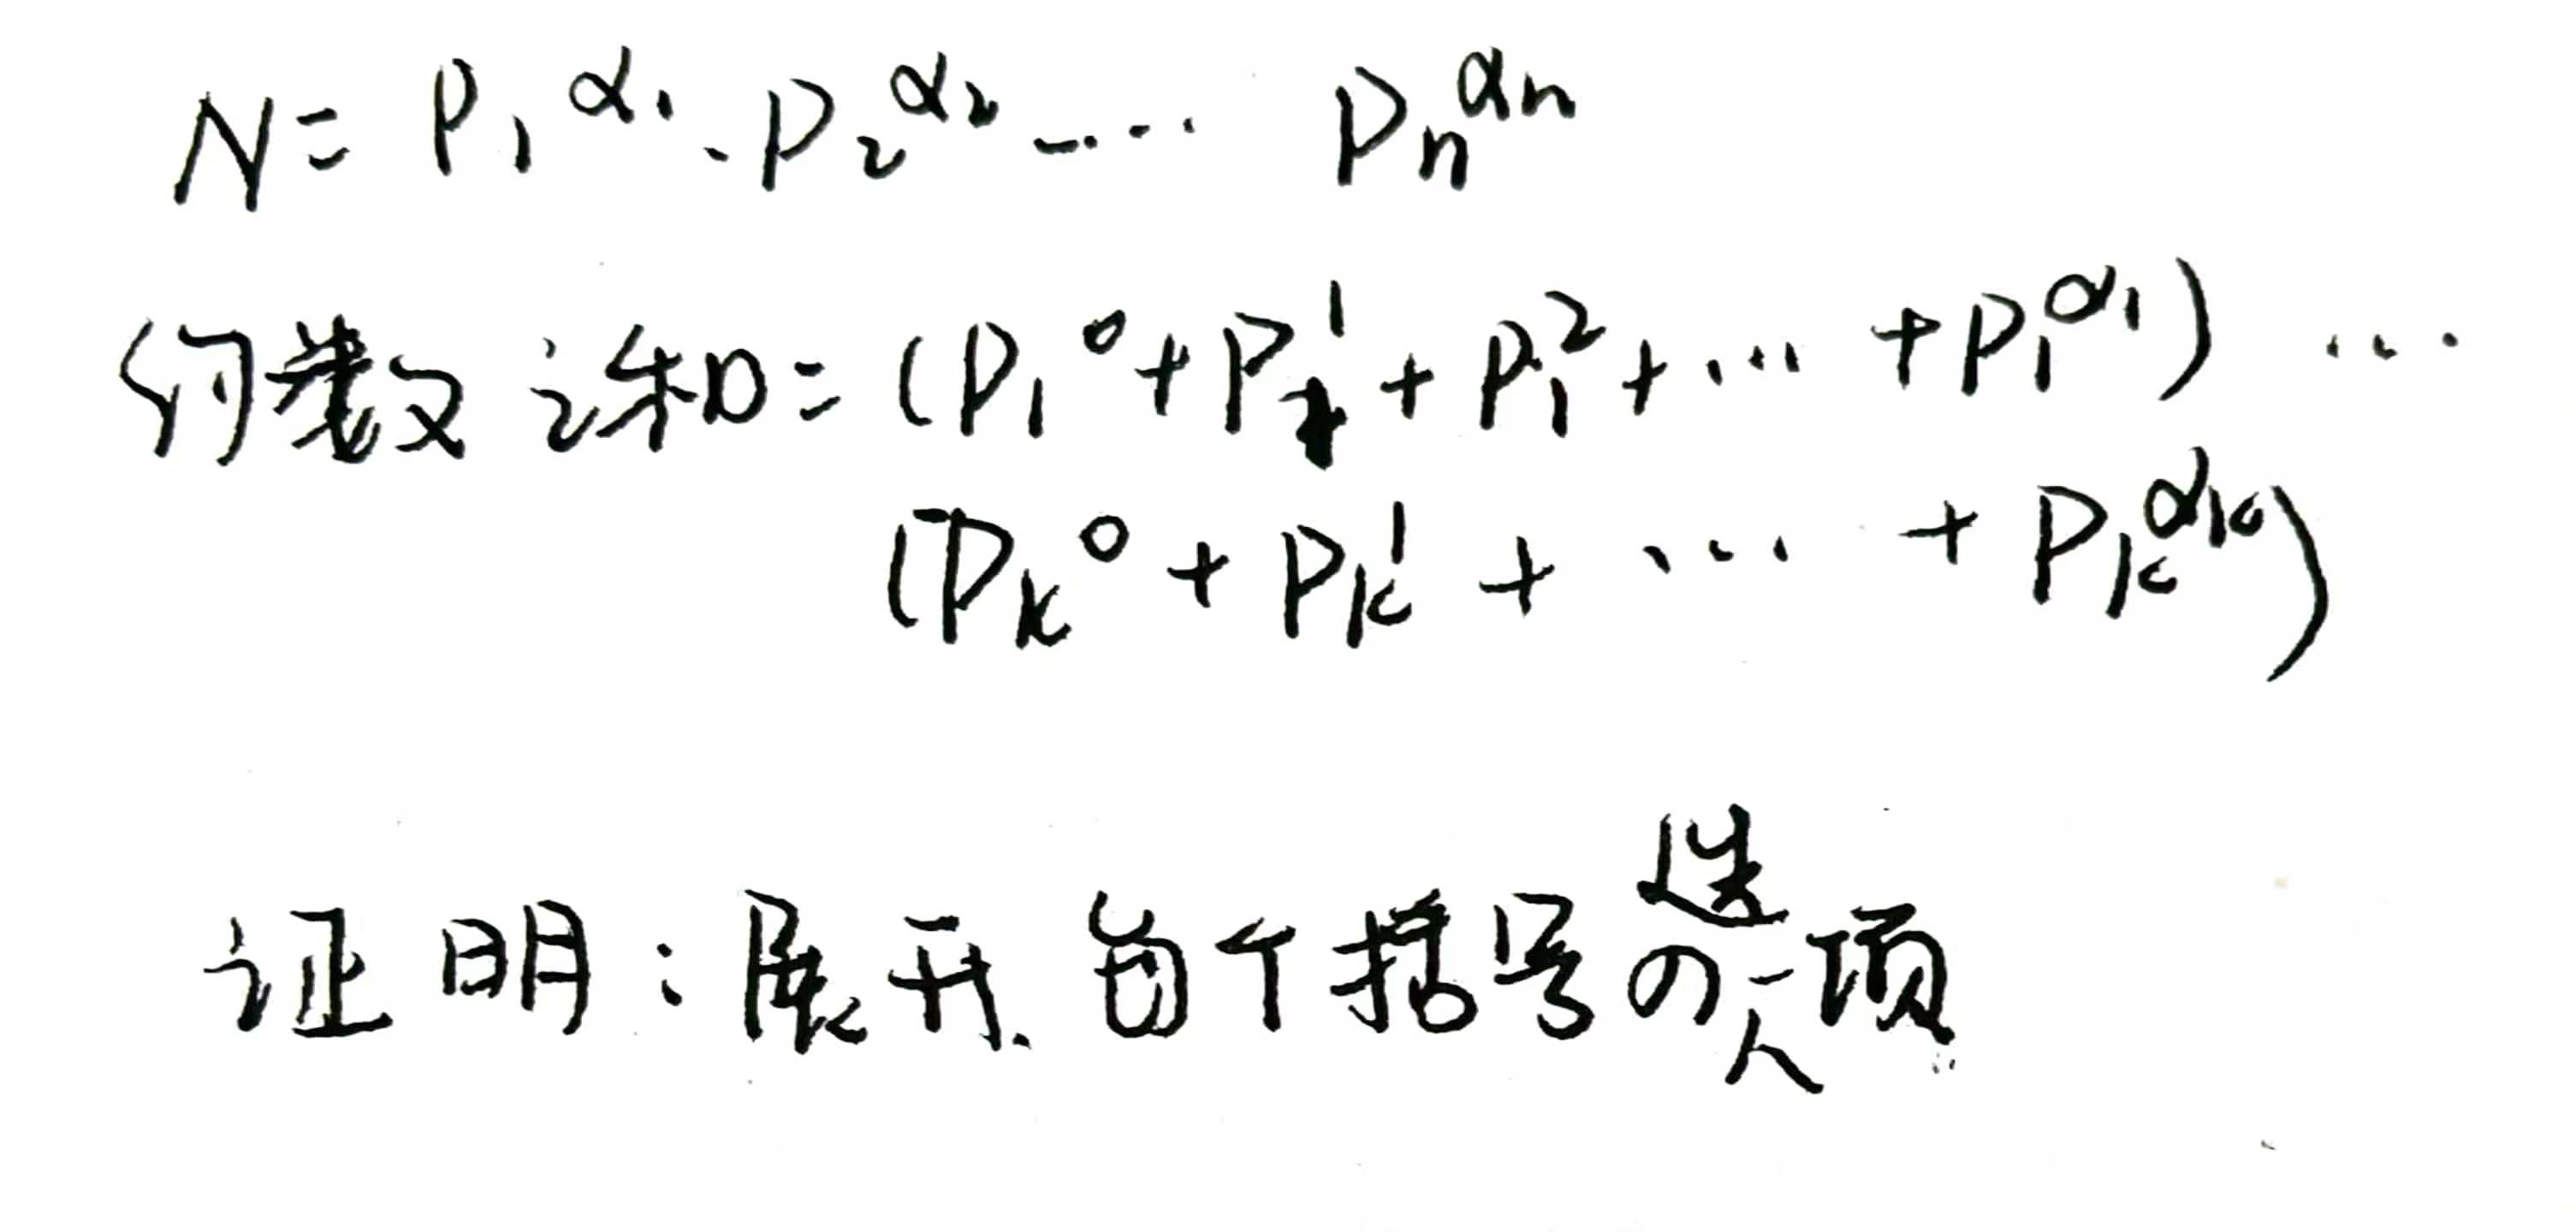 N = P₁^α₁ · P₂^α₂ ---··· Pₙ^αₙ
约数之和 = (P₁⁰ + P₁¹ + P₁² + ··· + P₁^α₁) ···
(Pₖ⁰ + Pₖ¹ + ··· + Pₖ^αₖ)
证明：展开. 每个括号の选一项